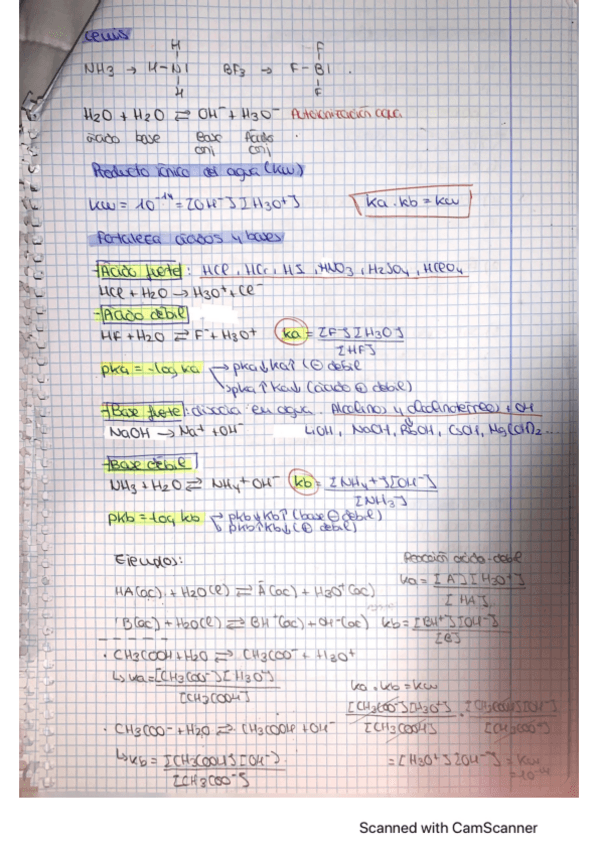 Lewis
H F
NH3 → H-N| BF3 → F-B| .
H F
H2O + H2O ⇌ OH⁻ + H3O⁺ Autoionización agua
ácido base Base conj Ácido conj
Producto iónico del agua (Kw)
Kw = 10⁻¹⁴ = [OH⁻][H3O⁺] Ka · Kb = Kw
Fortaleza ácidos y bases
- Ácido fuerte: HCl, HI, HNO3, H2SO4, HClO4
HCl + H2O → H3O⁺ + Cl⁻
- Ácido débil
HF + H2O ⇌ F⁻ + H3O⁺ Ka = [F⁻][H3O⁺] / [HF]
pKa = -log Ka → pKa↓Ka↑ (⊖ débil
→ pKa↑Ka↓ (ácido ⊕ débil)
- Base fuerte: disocia en agua. Alcalinos y alcalinotérreos + OH
NaOH → Na⁺ + OH⁻ LiOH, NaOH, RbOH, CsOH, Mg(OH)2 ...
- Base débil
NH3 + H2O ⇌ NH4⁺ OH⁻ Kb = [NH4⁺][OH⁻] / [NH3]
pKb = -log Kb → pKb↓Kb↑ (base ⊖ débil)
→ pKb↑Kb↓ (⊕ débil)
Ejemplos: Reacción ácido-débil
HA(ac) + H2O(l) ⇌ A⁻(ac) + H3O⁺(ac) Ka = [A⁻][H3O⁺] / [HA]
B(ac) + H2O(l) ⇌ BH⁺(ac) + OH⁻(ac) Kb = [BH⁺][OH⁻] / [B]
· CH3COOH + H2O ⇌ CH3COO⁻ + H3O⁺
↳ Ka = [CH3COO⁻][H3O⁺] / [CH3COOH] Ka · Kb = Kw
[CH3COO⁻][H3O⁺] / [CH3COOH] · [CH3COOH][OH⁻] / [CH3COO⁻]
· CH3COO⁻ + H2O ⇌ CH3COOH + OH⁻
↳ Kb = [CH3COOH][OH⁻] / [CH3COO⁻] = [H3O⁺][OH⁻] = Kw
= 10⁻¹⁴
Scanned with CamScanner